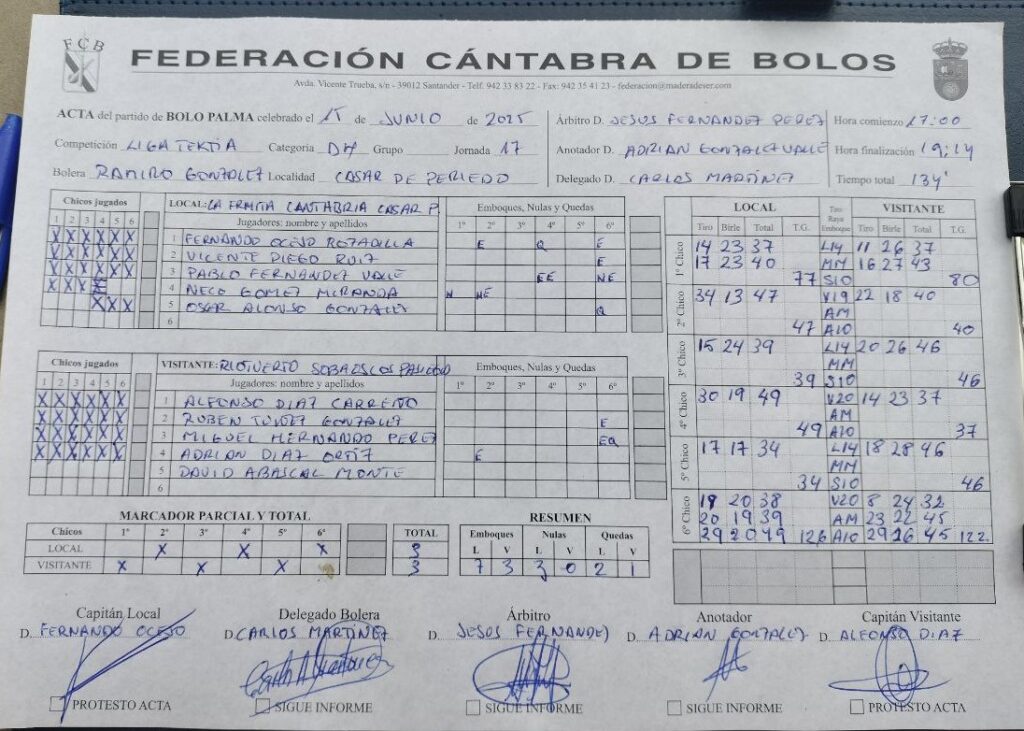 FCB
FEDERACIÓN CÁNTABRA DE BOLOS
Avda. Vicente Trueba, s/n - 39012 Santander - Telf. 942 33 83 22 - Fax: 942 35 41 23 - federacion@maderadeser.com
ACTA del partido de BOLO PALMA celebrado el 15 de JUNIO de 2025
Competición LIGA TEKTIA Categoría DH Grupo Jornada 17
Bolera RAMIRO GONZALEZ Localidad CASAR DE PERIEDO
Árbitro D. JESUS FERNANDEZ PEREZ
Anotador D. ADRIAN GONZALEZ VALLE
Delegado D. CARLOS MARTINEZ
Hora comienzo 17:00
Hora finalización 19:14
Tiempo total 134'
Chicos jugados
1 2 3 4 5 6
X X X X X X
X X X X X X
X X X X X X
X X X X
X X X
LOCAL: LA ERMITA CANTABRIA CASAR P.
Jugadores: nombre y apellidos
1 FERNANDO OCEJO ROTADILLA
2 VICENTE DIEGO RUIZ
3 PABLO FERNANDEZ VALLE
4 NECO GOMEZ MIRANDA
5 OSCAR ALONSO GONZALEZ
6
Emboques, Nulas y Quedas
1º 2º 3º 4º 5º 6º
E Q E
E
EE NE
N NE
Q
Chicos jugados
1 2 3 4 5 6
X X X X X X
X X X X X X
X X X X X X
X X X X X X
VISITANTE: RIOTUERTO SOBAOS LOS PASIEGOS
Jugadores: nombre y apellidos
1 ALFONSO DIAZ CARREÑO
2 RUBEN TUÑEZ GONZALEZ
3 MIGUEL HERNANDO PEREZ
4 ADRIAN DIAZ ORTIZ
5 DAVID ABASCAL MONTE
6
Emboques, Nulas y Quedas
1º 2º 3º 4º 5º 6º
E
EQ
E
LOCAL Tiro Raya Emboque VISITANTE
Tiro Birle Total T.G. Tiro Birle Total T.G.
1º Chico 14 23 37 L14 11 26 37
17 23 40 MM 16 27 43
77 S10 80
2º Chico 34 13 47 V19 22 18 40
AM
47 A10 40
3º Chico 15 24 39 L14 20 26 46
MM
39 S10 46
4º Chico 30 19 49 V20 14 23 37
AM
49 A10 37
5º Chico 17 17 34 L14 18 28 46
MM
34 S10 46
6º Chico 18 20 38 V20 8 24 32
20 19 39 AM 23 22 45
29 20 49 126 A10 29 16 45 122.
MARCADOR PARCIAL Y TOTAL
Chicos 1º 2º 3º 4º 5º 6º TOTAL
LOCAL X X X 3
VISITANTE X X X 3
RESUMEN
Emboques Nulas Quedas
L V L V L V
7 3 3 0 2 1
Capitán Local
D. FERNANDO OCEJO
PROTESTO ACTA
Delegado Bolera
D. CARLOS MARTINEZ
SIGUE INFORME
Árbitro
D. JESUS FERNANDEZ
SIGUE INFORME
Anotador
D. ADRIAN GONZALEZ
SIGUE INFORME
Capitán Visitante
D. ALFONSO DIAZ
PROTESTO ACTA